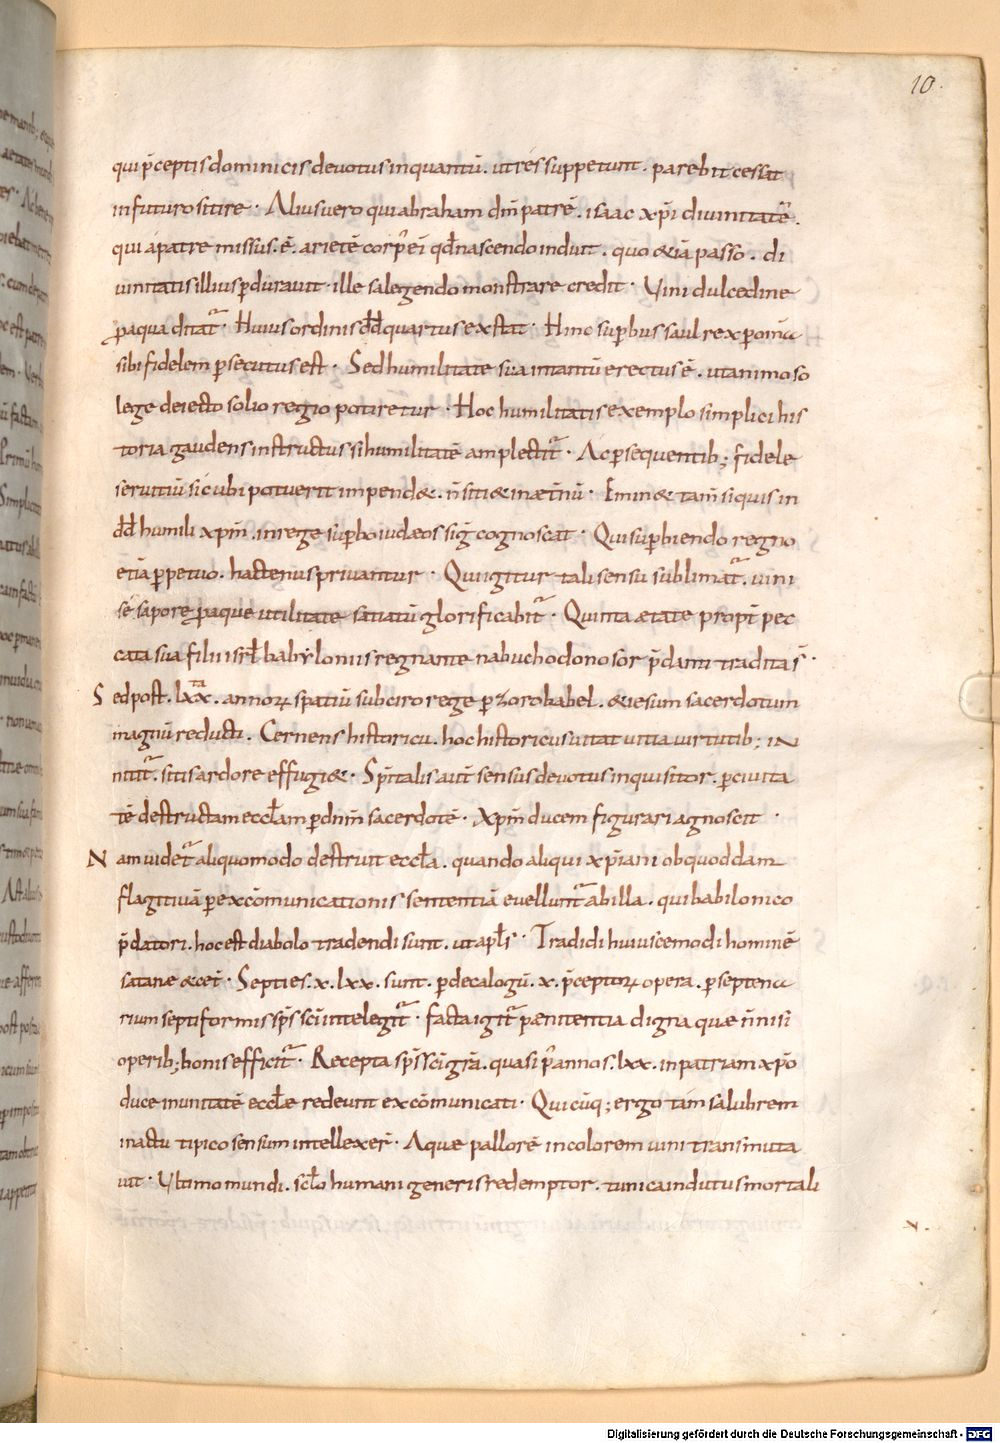 10.
qui p̄ceptis dominicis devotus inquantū. ut res suppetunt. parebit cessat
infuturo sitire · Alius vero qui abraham dm̄ patrē. isaac xp̄i divinitatē.
qui a patre missus. ē. arietē corp̄ eī qđ nascendo induit. quo &iā passo. di
vinitatis illius pduravit · ille salegendo monstrare credit · Vini dulcedine
p aqua ditat̄ · Huius ordinis dd̄ quartus exstat · Hinc supbus saul rex p om̄a
sibi fidelem psecutus est · Sed humilitate sua intantū erectus ē. ut animoso
lege deiecto solio regio potiretur · Hoc humilitatis exemplo simplici his
toria gaudens instructus si humilitatē amplectit̄ · Ac psequentib; fidele
servitiū sicubi potuerit impend&. n̄ siti& inæt̄nū · Emin& tam̄ siquis in
dd̄ humili xpm̄. in rege supbo iudæos sig̃ cognoscat · Qui supbiendo regno
etiā ppetuo. hactenus privantur · Qui igitur tali sensu sublimat̄. vini
se sapore p aquæ utilitate satiatū glorificabit̄ · Quinta ætate propt̄ pec
cata sua filii isrl̄ babyloniis regnante nabuchodonosor p̄danti traditi s̄ ·
Sed post. lxx̄ta. annoꝝ spatiū sub ciro rege p zorobabel. & iesum sacerdotum
magnū reducti. Cernens historicu. hoc historicus si vitat vitia virtutib; in
nitit̄. sitis ardore effugi& · Sp̄italis aut̄ sensus devotus inquisitor. p civita
tē destructam eccl̄am p dnm̄ sacerdotē · Xpm̄ ducem figurari agnoscit ·
Nam videt̄ aliquomodo destrui eccl̄a. quando aliqui xp̄iani ob quoddam
flagitiuā p excōmunicationis sententiā evellunt̄ ab illa. qui babilonico
p̄datori. hoc est diabolo tradendi sunt. ut apl̄s · Tradidi huiuscemodi hominē
satanæ & cet̄ · Septies. x. lxx. sunt. p decalogū. x. p̄ceptoꝝ opera. p septena
rium septiformis sp̄s sc̄i intelegit̄ · facta igit̄ pænitentia digna quæ n̄ nisi
operib; bonis efficit̄ · Recepta sp̄s sc̄i gr̄a. quasi p̄ annos. lxx. in patriam xp̄o
duce in unitatē eccl̄æ redeunt excōmunicati · Quicūq; ergo tam̄ salubrem
in actu tipico sensum intellexer̄ · Aquæ pallorē in colorem vini transmuta
vit · Ultimo mundi. scl̄o humani generis redemptor. tunica indutus mortali
Digitalisierung gefördert durch die Deutsche Forschungsgemeinschaft - DFG